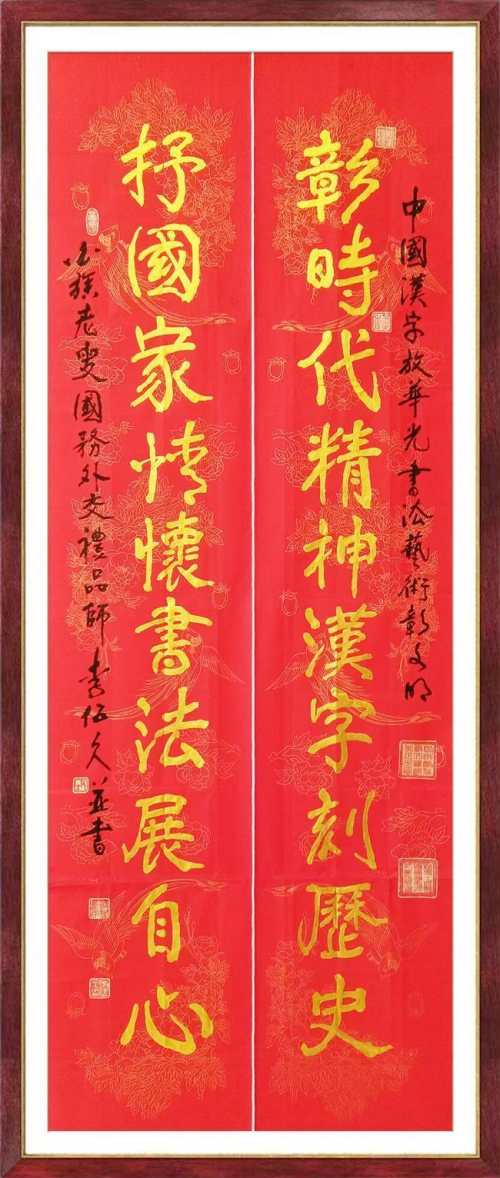 中國漢字放華光書法藝術彰文明
彰時代精神漢字刻歷史
抒國家情懷書法展自心
老叟國務外交禮品師 李伍久并書